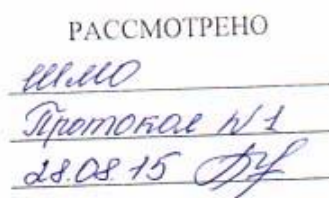 РАССМОТРЕНО
ШМО
Протокол №1
28.08.15